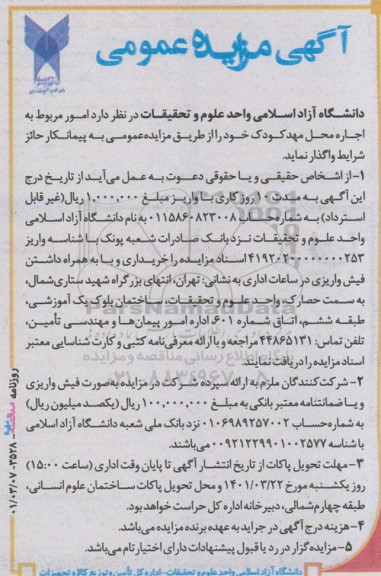 آگهی مزایده عمومی
دانشگاه آزاد اسلامی واحد علوم و تحقیقات در نظر دارد امور مربوط به
اجاره محل مهدکودک خود را از طریق مزایده عمومی به پیمانکار حائز
شرایط واگذار نماید.
۱- از اشخاص حقیقی و یا حقوقی دعوت به عمل می‌آید از تاریخ درج
این آگهی به مدت ۱۰ روز کاری با واریز مبلغ ۱,۰۰۰,۰۰۰ ریال (غیر قابل
استرداد) به شماره حساب ۰۱۱۵۸۶۰۸۲۳۰۰۸ به نام دانشگاه آزاد اسلامی
واحد علوم و تحقیقات نزد بانک صادرات شعبه پونک با شناسه واریز
اسناد مزایده را خریداری و یا به همراه داشتن
فیش واریزی در ساعات اداری به نشانی: تهران، انتهای بزرگراه شهید ستاری شمال،
به سمت حصارک، واحد علوم و تحقیقات، ساختمان بلوک یک آموزشی،
طبقه ششم، اتاق شماره ۶۰۱، اداره امور پیمان‌ها و مهندسی تأمین،
تلفن تماس: ۴۴۸۶۵۱۳۱ مراجعه و با ارائه معرفی‌نامه کتبی و کارت شناسایی معتبر
اسناد مزایده را دریافت نمایند.
۲- شرکت‌کنندگان ملزم به ارائه سپرده شرکت در مزایده به صورت فیش واریزی
و یا ضمانتنامه معتبر بانکی به مبلغ ۱۰۰,۰۰۰,۰۰۰ ریال (یکصد میلیون ریال)
به شماره حساب ۰۱۰۶۹۸۹۲۵۷۰۰۲ نزد بانک ملی شعبه دانشگاه آزاد اسلامی
با شناسه می‌باشند.
۳- مهلت تحویل پاکات از تاریخ انتشار آگهی تا پایان وقت اداری (ساعت ۱۵:۰۰)
روز یکشنبه مورخ ۱۴۰۱/۰۳/۲۲ و محل تحویل پاکات ساختمان علوم انسانی،
طبقه چهارم شمالی، دبیرخانه اداره کل حراست خواهد بود.
۴- هزینه درج آگهی در جراید به عهده برنده مزایده می‌باشد.
۵- مزایده‌گزار در رد یا قبول پیشنهادات دارای اختیار تام می‌باشد.
دانشگاه آزاد اسلامی واحد علوم و تحقیقات - اداره کل تأمین و توزیع کالا و تجهیزات
روزنامه
۳۵۲۸-۰۱/۰۳/۰۷
ParsNamadData
پایگاه اطلاع رسانی مناقصه و مزایده